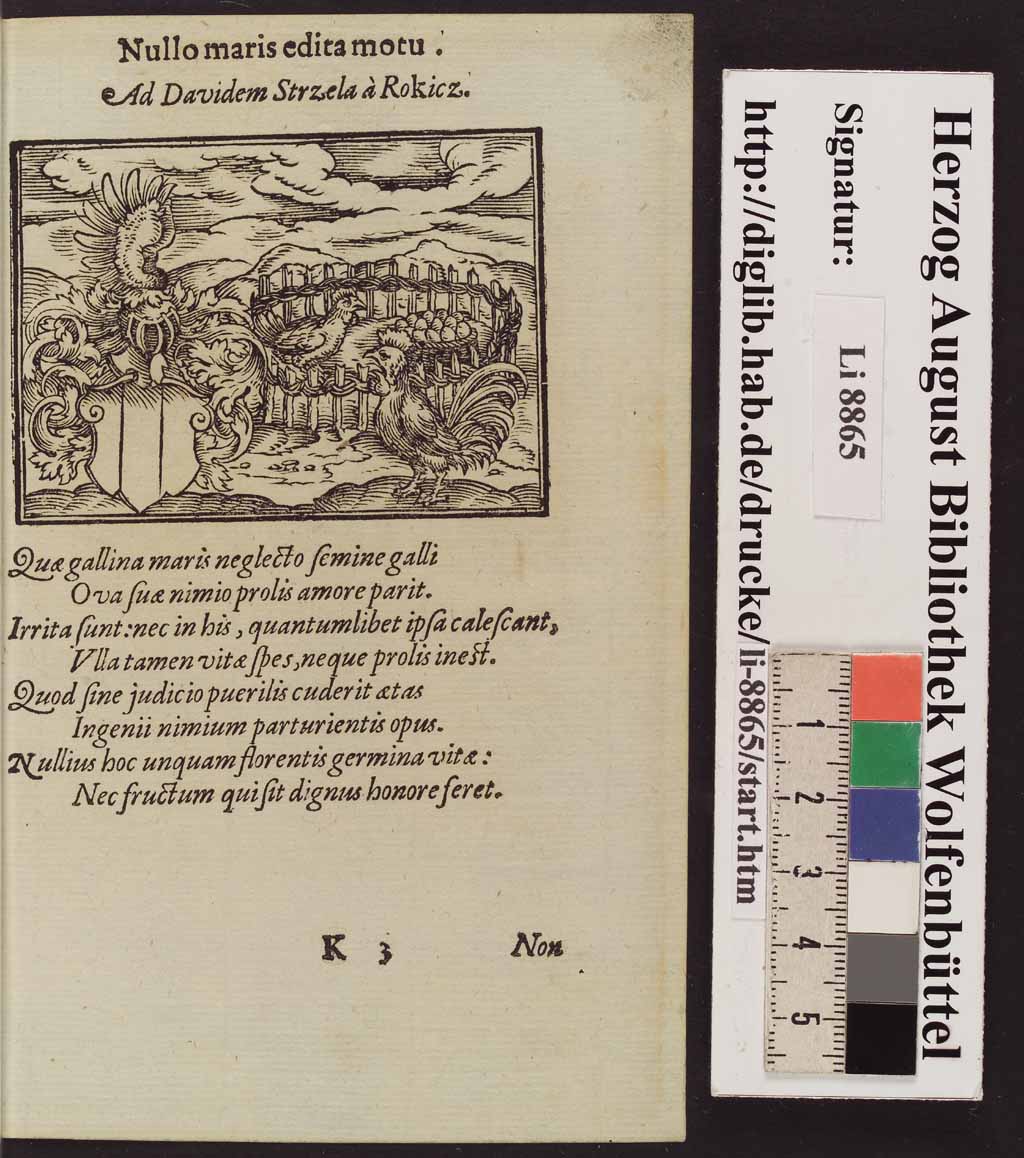 Nullo maris edita motu.
Ad Davidem Strzela à Rokicz.
Quæ gallina maris neglecto ſemine galli
Ova ſuæ nimio prolis amore parit.
Irrita ſunt: nec in his, quantumlibet ipſa caleſcant,
Vlla tamen vitæ ſpes, neque prolis inest.
Quod ſine judicio puerilis cuderit ætas
Ingenii nimium parturientis opus.
Nullius hoc unquam florentis germina vitæ:
Nec fructum qui ſit dignus honore feret.
K 3 Non
Herzog August Bibliothek Wolfenbüttel
Signatur: Li 8865
http://diglib.hab.de/drucke/li-8865/start.htm
1 2 3 4 5